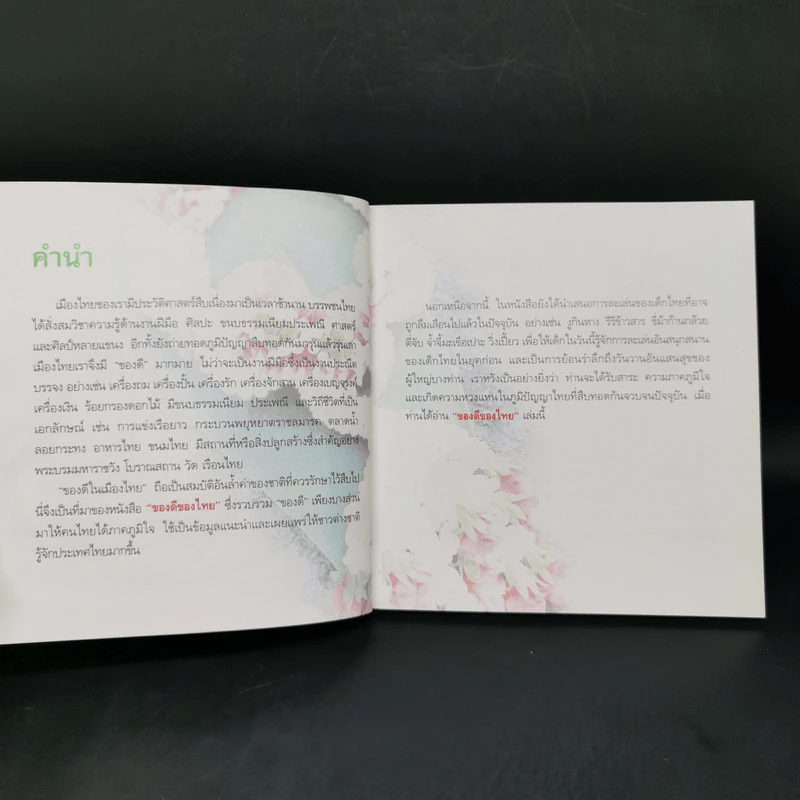 คำนำ
เมืองไทยของเรามีประวัติศาสตร์สืบเนื่องมาเป็นเวลาช้านาน บรรพชนไทย
ได้สั่งสมวิชาความรู้ด้านงานฝีมือ ศิลปะ ขนบธรรมเนียมประเพณี ศาสตร์
และศิลป์หลายแขนง อีกทั้งยังถ่ายทอดภูมิปัญญาสืบทอดกันมารุ่นแล้วรุ่นเล่า
เมืองไทยเราจึงมี "ของดี" มากมาย ไม่ว่าจะเป็นงานฝีมือซึ่งเป็นงานประณีต
บรรจง อย่างเช่น เครื่องถม เครื่องปั้น เครื่องรัก เครื่องจักสาน เครื่องเบญจรงค์
เครื่องเงิน ร้อยกรองดอกไม้ มีขนบธรรมเนียม ประเพณี และวิถีชีวิตที่เป็น
เอกลักษณ์ เช่น การแข่งเรือยาว กระบวนพยุหยาตราชลมารค ตลาดน้ำ
ลอยกระทง อาหารไทย ขนมไทย มีสถานที่หรือสิ่งปลูกสร้างซึ่งสำคัญอย่าง
พระบรมมหาราชวัง โบราณสถาน วัด เรือนไทย
"ของดีในเมืองไทย" ถือเป็นสมบัติอันล้ำค่าของชาติที่ควรรักษาไว้สืบไป
นี่จึงเป็นที่มาของหนังสือ "ของดีของไทย" ซึ่งรวบรวม "ของดี" เพียงบางส่วน
มาให้คนไทยได้ภาคภูมิใจ ใช้เป็นข้อมูลแนะนำและเผยแพร่ให้ชาวต่างชาติ
รู้จักประเทศไทยมากขึ้น
นอกเหนือจากนี้ ในหนังสือยังได้นำเสนอการละเล่นของเด็กไทยที่อาจ
ถูกลืมเลือนไปแล้วในปัจจุบัน อย่างเช่น งูกินหาง รีรีข้าวสาร ขี่ม้าก้านกล้วย
ตี่จับ จ้ำจี้มะเขือเปาะ วิ่งเปี้ยว เพื่อให้เด็กในวันนี้รู้จักการละเล่นอันสนุกสนาน
ของเด็กไทยในยุคก่อน และเป็นการย้อนรำลึกถึงวันวานอันแสนสุขของ
ผู้ใหญ่บางท่าน เราหวังเป็นอย่างยิ่งว่า ท่านจะได้รับสาระ ความภาคภูมิใจ
และเกิดความหวงแหนในภูมิปัญญาไทยที่สืบทอดกันจวบจนปัจจุบัน เมื่อ
ท่านได้อ่าน "ของดีของไทย" เล่มนี้